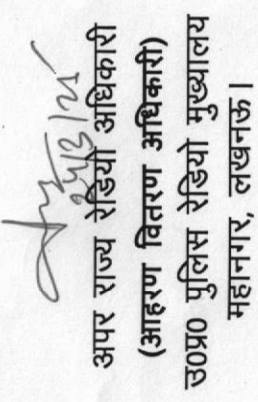 अपर राज्य रेडियो अधिकारी
(आहरण वितरण अधिकारी)
उ०प्र० पुलिस रेडियो मुख्यालय
महानगर, लखनऊ।